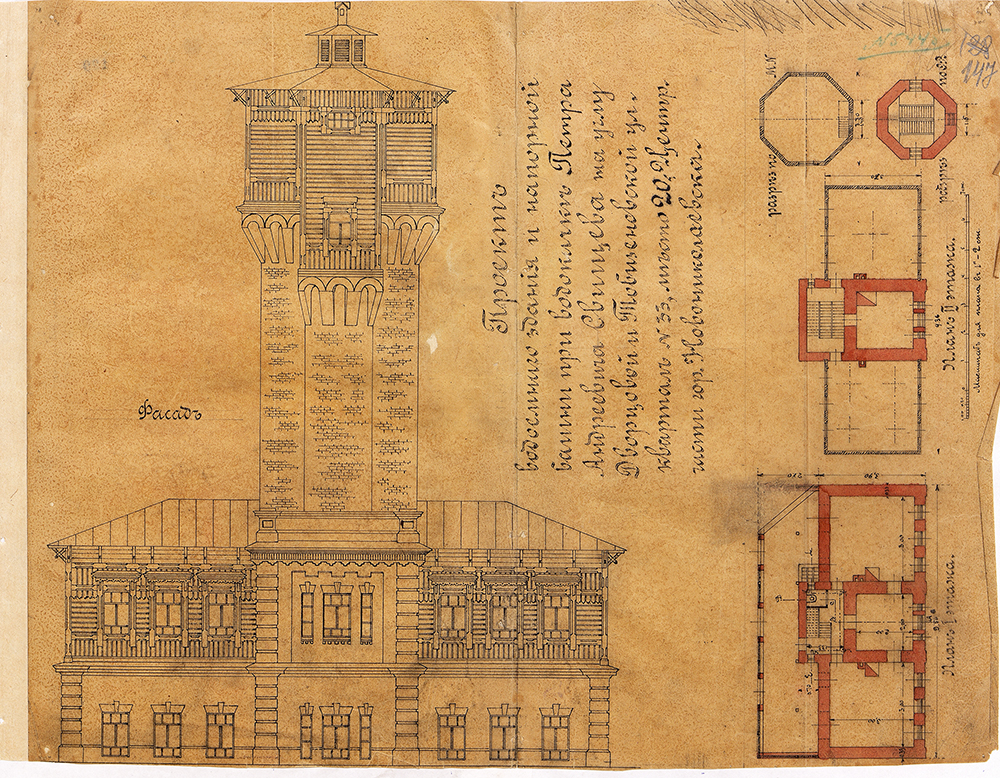 Проектъ
водоемнаго зданія и напорной
башни при водокачкѣ Петра
Андреевича Свинцева на углу
Дворцовой и Тобизеновской ул.
кварталъ №33, мѣсто 20, Центр.
части гор. Новониколаевска.
Фасадъ
147
разрѣзъ по MN
Планъ II этажа.
Планъ I этажа.